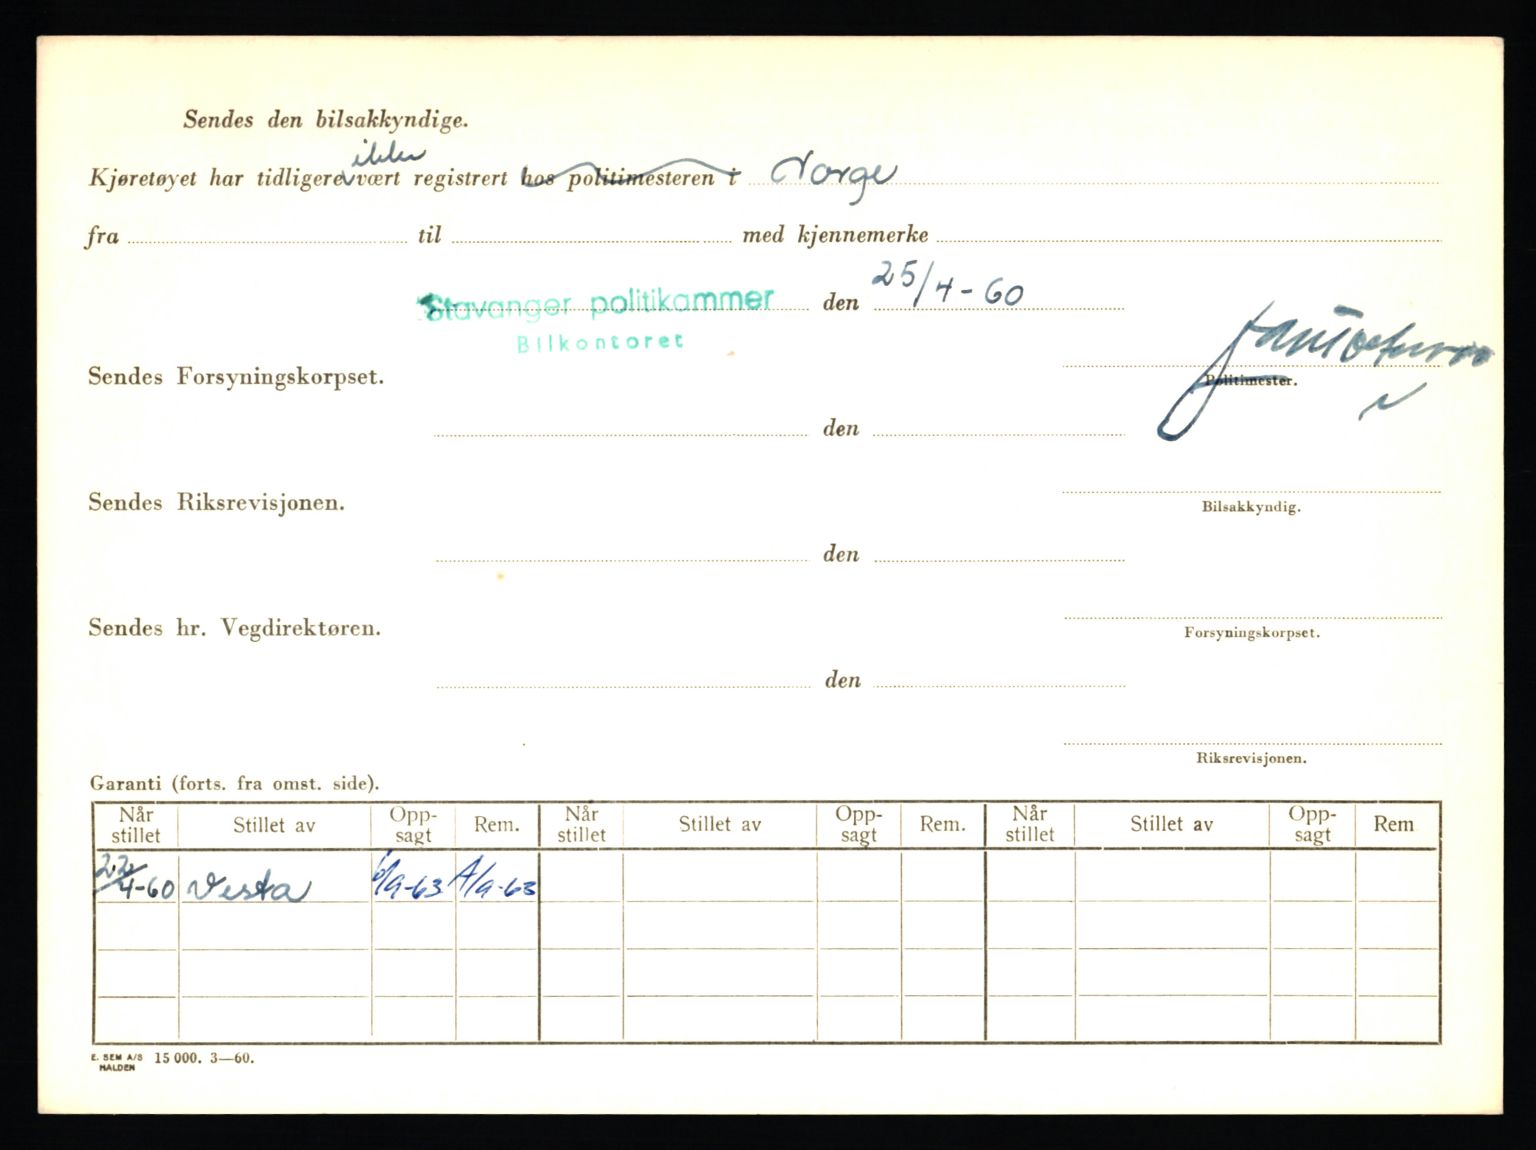 Sendes den bilsakkyndige.
ikke
Kjøretøyet har tidligere vært registrert hos politimesteren i Norge
fra til med kjennemerke
Stavanger politikammer den 25/4-60
Bilkontoret
Sendes Forsyningskorpset.
Politimester.
den
Sendes Riksrevisjonen.
Bilsakkyndig.
den
Sendes hr. Vegdirektøren.
Forsyningskorpset.
den
Riksrevisjonen.
Garanti (forts. fra omst. side).
Når stillet Stillet av Opp-sagt Rem. Når stillet Stillet av Opp-sagt Rem. Når stillet Stillet av Opp-sagt Rem
22/4-60 Vesta /9-63 /9-63
E. SEM A/S 15 000. 3—60.
HALDEN